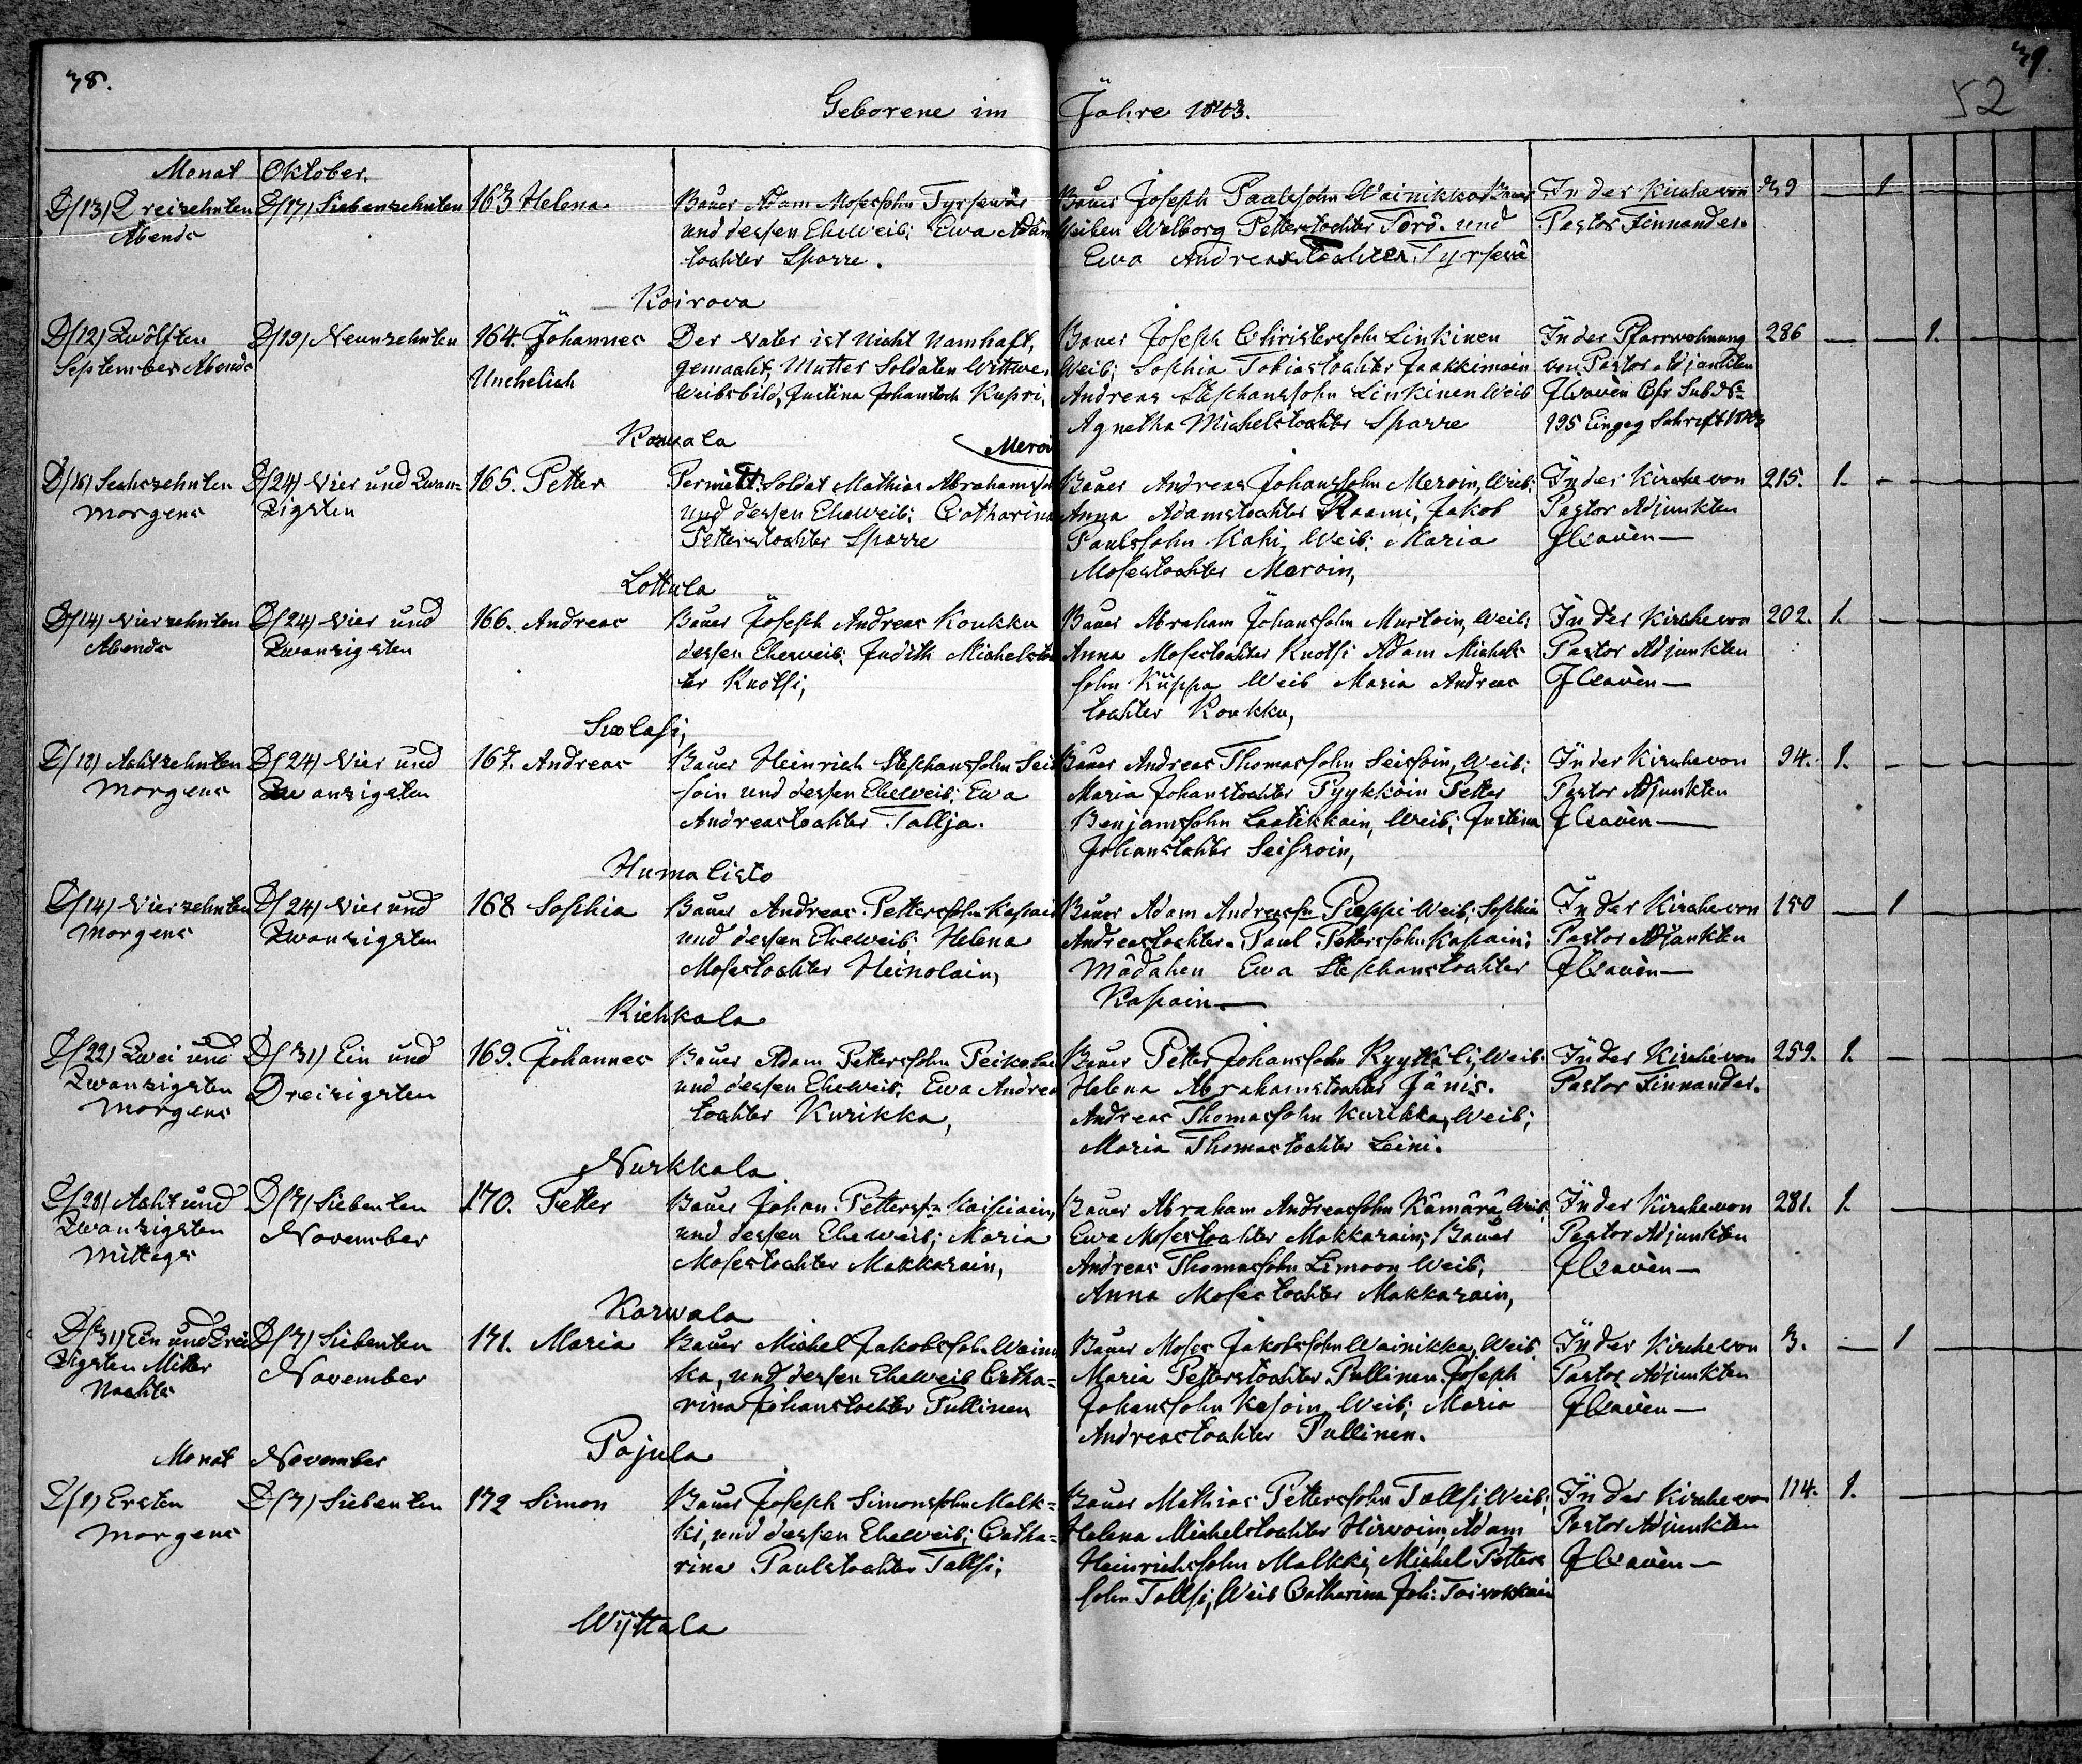 38.
39.
52
Geborene im Jahre 1843.
Monat Oktober.
D/13) Dreizehnten
Abends
D/17) Siebenzehnten
163 Helena
Bauer Adam Mosessohn Tyrsewä
und dessen Eheweib: Ewa Adam
tochter Sparre.
Bauer Joseph Paalssohn Wainikka, Bauer
Weiben Walborg Petterstochter Törö. und
Ewa Andreastochter Tyrsewä
In der Kirche von
Pastor Finnander.
39 — 1
Koirova
D/12) Zwölften
September Abends
D/19) Neunzehnten
164. Johannes
Unehelich
Der Vater ist nicht namhaft,
gemacht, Mutter Soldaten Wittwe,
Weibsbild, Justina Johanstoch Kupri,
Bauer Joseph Christerssohn Linkinen
Weib; Sophia Tobiastochter Jaakkimain
Andreas Stephanssohn Linkinen Weib
Agnetha Michelstochter Sparre
In der Pfarrwohnung
von Pastor Adjunkten
Cfr Sub No
195 Eingeg Schrift 1843
286 — — 1.
Meroi
D/16) Sechszehnten
Morgens
D/24) Vier und Zwan=
zigsten
165. Petter
Permitt. Soldat Mathias Abrahamssoh
und dessen Eheweib: Catharina
Petterstochter Sparre
Bauer Andreas Johanssohn Meroin, Weib:
Anna Adamstochter Raami, Jakob
Paulssohn Kahi, Weib: Maria
Mosestochter Meroin,
In der Kirche von
Pastor Adjunkten
215. 1. —
Lottula
D/14) Vierzehnten
Abends
D/24) Vier und
Zwanzigsten
166. Andreas
Bauer Joseph Andreas Koukku
dessen Eheweib: Judith Michelstoch
ter Knotsi,
Bauer Abraham Johanssohn Mustoin, Weib:
Anna Mosestochter Knotsi Adam Michels
sohn Küppa Weib Maria Andreas
tochter Koukku,
In der Kirche von
Pastor Adjunkten
202. 1. —
D/18) Achtzehnten
Morgens
D/24) Vier und
Zwanzigsten
167. Andreas
Bauer Heinrich Stephanssohn Seis
soin und dessen Eheweib: Ewa
Andreastochter Tallja.
Bauer Andreas Thomassohn Seissoin, Weib:
Maria Johanstochter Pyykköin Petter
Benjamssohn Laatikkain, Weib: Justina
Johanstochter Seissoin,
In der Kirche von
Pastor Adjunkten
94. 1. —
Humalisto
D/14) Vierzehnten
Morgens
D/24) Vier und
Zwanzigsten
168 Sophia
Bauer Andreas Petterssohn Kapain
und dessen Eheweib: Helena
Mosestochter Heinolain,
Bauer Adam Andreassn Peppi Weib; Sophia
Andreastochter. Paul Petterssohn Kapain;
Mädchen Ewa Stephanstochter
Kapain —
In der Kirche von
Pastor Adjunkten
150 — 1
Kiehkala
D/22) Zwei und
Zwanzigsten
Morgens
D/31) Ein und
Dreizigsten
169. Johannes
Bauer Adam Petterssohn Peikolai
und dessen Eheweib, Ewa Andrea
tochter Kurikka,
Bauer Petter Johanssohn Ryyttäli, Weib:
Helena Abrahamstochter Jänis.
Andreas Thomassohn Kurikka, Weib;
Maria Thomastochter Leini.
In der Kirche von
Pastor Finnander.
259. 1. —
Nurkkala
D/28) Acht und
Zwanzigsten
Mittags
D/7) Siebenten
November
170. Petter
Bauer Johan Petterssn Kaipiain,
und dessen Eheweib; Maria
Mosestochter Makkarain,
Bauer Abraham Andreassohn Kämärä Weib,
Ewa Mosestochter Makkarain; Bauer
Andreas Thomassohn Limoon Weib;
Anna Mosestochter Makkarain,
In der Kirche von
Pastor Adjunkten
281. 1. —
Karwala
D/31) Ein und Drei
zigsten Mitter
Nachts
D/7) Siebenten
November
171. Maria
Bauer Michel Jakobssohn Wainik
ka, und dessen Eheweib Catha=
rina Johanstochter Pullinen
Bauer Moses Jakobssohn Wainikka, Weib.
Maria Petterstochter Pullinen. Joseph
Johanssohn Kasoin Weib; Maria
Andreastochter Pullinen.
In der Kirche von
Pastor Adjunkten
3. — 1
Pajula
Monat November
D/1) Ersten
Morgens
D/7) Siebenten
172 Simon
Bauer Joseph Simonssohn Malk=
ki, und dessen Eheweib; Catha=
rina Paulstochter Tallsi;
Bauer Mathias Petterssohn Tallsi Weib;
Helena Michelstochter Hirvoin; Adam
Heinrichssohn Malkki, Michel Petters
sohn Tallsi, Weib Catharina Joh: Toivokkain
In der Kirche von
Pastor Adjunkten
114. 1. —
Wyttala